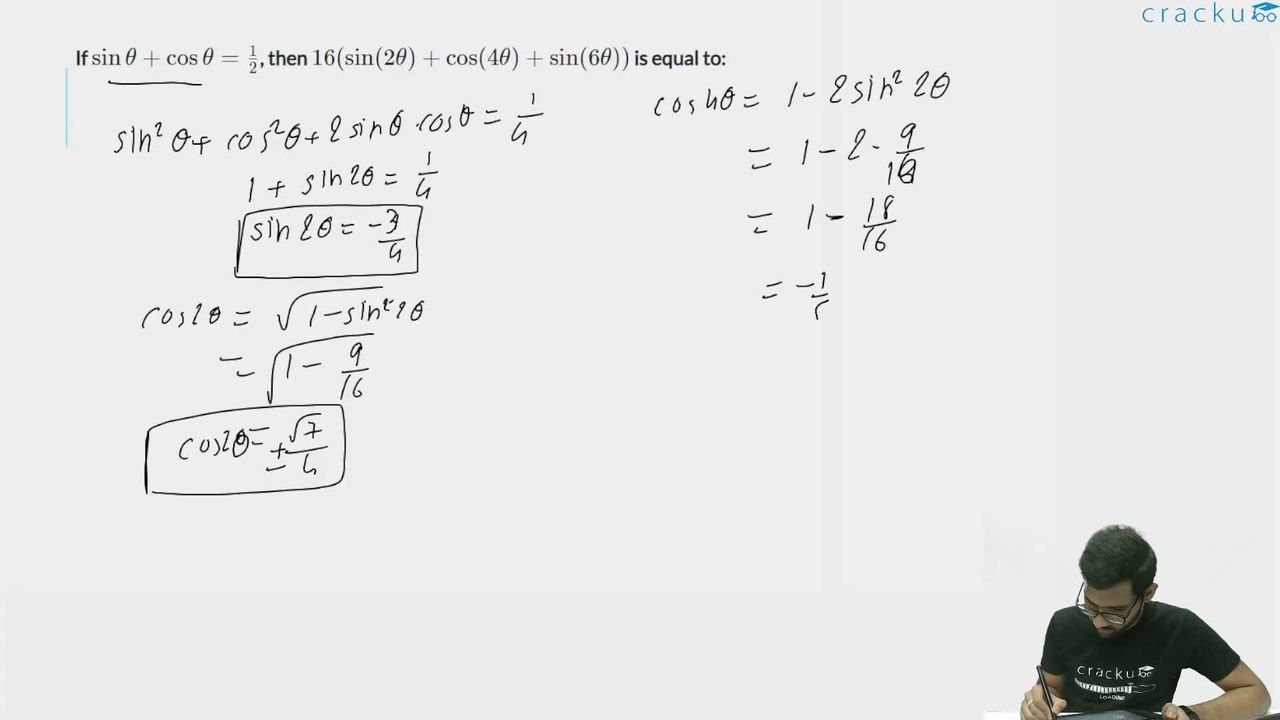 cracku
If sin θ + cos θ = 1/2, then 16(sin(2θ) + cos(4θ) + sin(6θ)) is equal to:
sin² θ + cos² θ + 2 sin θ · cos θ = 1/4
1 + sin 2θ = 1/4
sin 2θ = -3/4
cos 2θ = √(1 - sin² 2θ)
= √(1 - 9/16)
cos 2θ = ± √7/4
cos 4θ = 1 - 2 sin² 2θ
= 1 - 2 · 9/16
= 1 - 18/16
= -1/
cracku
LOADING